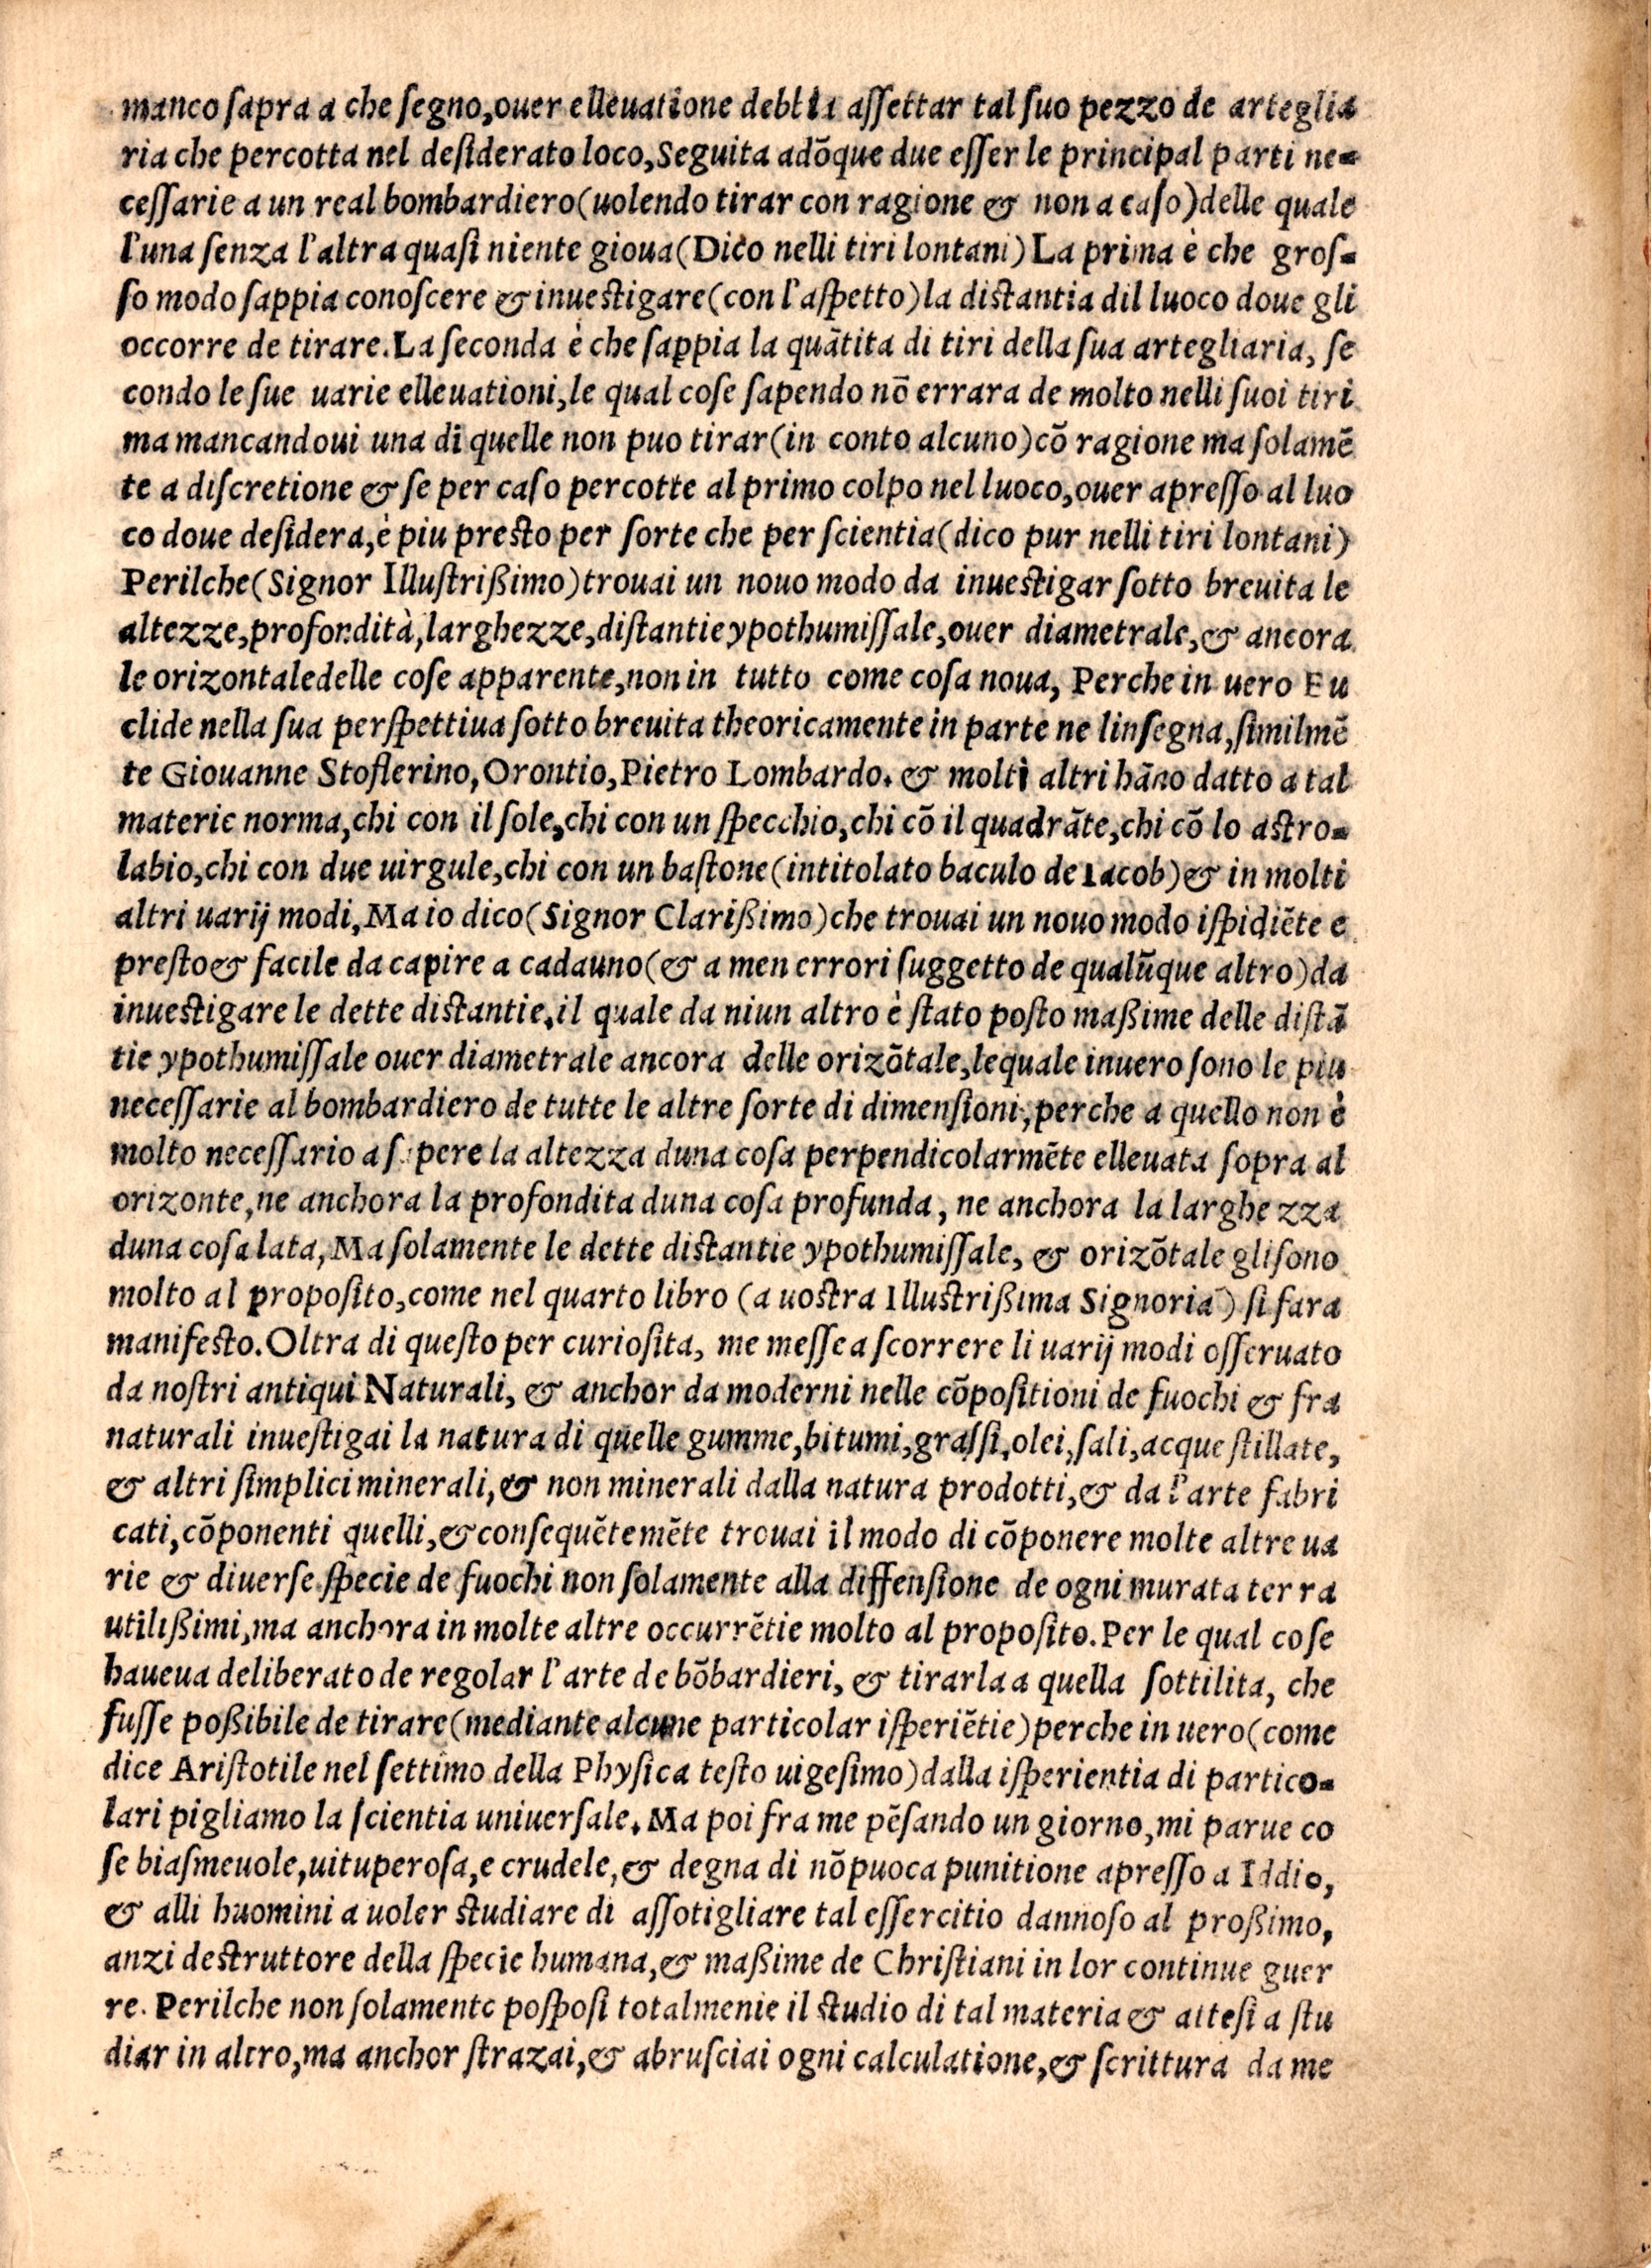 manco sapra a che segno,ouer elleuatione debbia assettar tal suo pezzo de arteglia
ria che percotta nel desiderato loco,Seguita adõque due esser le principal parti ne=
cessarie a un real bombardiero(uolendo tirar con ragione & non a caso)delle quale
l'una senza l'altra quasi niente gioua(Dico nelli tiri lontani)La prima è che gros=
so modo sappia conoscere & inuestigare(con l'aspetto)la distantia dil luoco doue gli
occorre de tirare.La seconda è che sappia la quãtita di tiri della sua artegliaria, se
condo le sue uarie elleuationi,le qual cose sapendo nõ errara de molto nelli suoi tiri
ma mancandoui una di quelle non puo tirar(in conto alcuno)cõ ragione ma solamẽ
te a discretione & se per caso percotte al primo colpo nel luoco,ouer apresso al luo
co doue desidera,è piu presto per sorte che per scientia(dico pur nelli tiri lontani)
Perilche(Signor Illustrißimo)trouai un nouo modo da inuestigar sotto breuita le
altezze,profondità,larghezze,distantie ypothumissale,ouer diametrale,& ancora
le orizontaledelle cose apparente,non in tutto come cosa noua, Perche in uero Eu
clide nella sua perspettiua sotto breuita theoricamente in parte ne linsegna,similmẽ
te Giouanne Stoflerino,Orontio,Pietro Lombardo. & molti altri hãno datto a tal
materie norma,chi con il sole,chi con un specchio,chi cõ il quadrãte,chi cõ lo astro=
labio,chi con due uirgule,chi con un bastone(intitolato baculo de Iacob)& in molti
altri uarij modi,Ma io dico(Signor Clarißimo)che trouai un nouo modo ispidiẽte e
presto& facile da capire a cadauno(& a men errori suggetto de qualũque altro)da
inuestigare le dette distantie.il quale da niun altro è stato posto maßime delle distã
tie ypothumissale ouer diametrale ancora delle orizõtale,lequale inuero sono le piu
necessarie al bombardiero de tutte le altre sorte di dimensioni,perche a quello non è
molto necessario a sapere la altezza duna cosa perpendicolarmẽte elleuata sopra al
orizonte,ne anchora la profondita duna cosa profunda, ne anchora la larghezza
duna cosa lata,Ma solamente le dette distantie ypothumissale, & orizõtale gli sono
molto al proposito,come nel quarto libro (a uostra Illustrißima Signoria) si fara
manifesto.Oltra di questo per curiosita, me messe a scorrere li uarij modi osseruato
da nostri antiqui Naturali, & anchor da moderni nelle cõpositioni de fuochi & fra
naturali inuestigai la natura di quelle gumme,bitumi,grassi,olei,sali,acque stillate,
& altri simplici minerali,& non minerali dalla natura prodotti,& da l'arte fabri
cati,cõponenti quelli,& consequẽtemẽte trouai il modo di cõponere molte altre ua
rie & diuerse specie de fuochi non solamente alla diffensione de ogni murata terra
utilißimi,ma anchora in molte altre occurrẽtie molto al proposito.Per le qual cose
haueua deliberato de regolar l'arte de bõbardieri, & tirarla a quella sottilita, che
fusse poßibile de tirare(mediante alcune particolar isperiẽtie)perche in uero(come
dice Aristotile nel settimo della Physica testo uigesimo)dalla isperientia di partico=
lari pigliamo la scientia uniuersale.Ma poi fra me pẽsando un giorno,mi parue co
se biasmeuole,uituperosa,e crudele,& degna di nõpuoca punitione apresso a Iddio,
& alli huomini a uoler studiare di assotigliare tal essercitio dannoso al proßimo,
anzi destruttore della specie humana,& maßime de Christiani in lor continue guer
re. Perilche non solamente posposi totalmenie il studio di tal materia & attesi a stu
diar in altro,ma anchor strazai,& abrusciai ogni calculatione,& scrittura da me